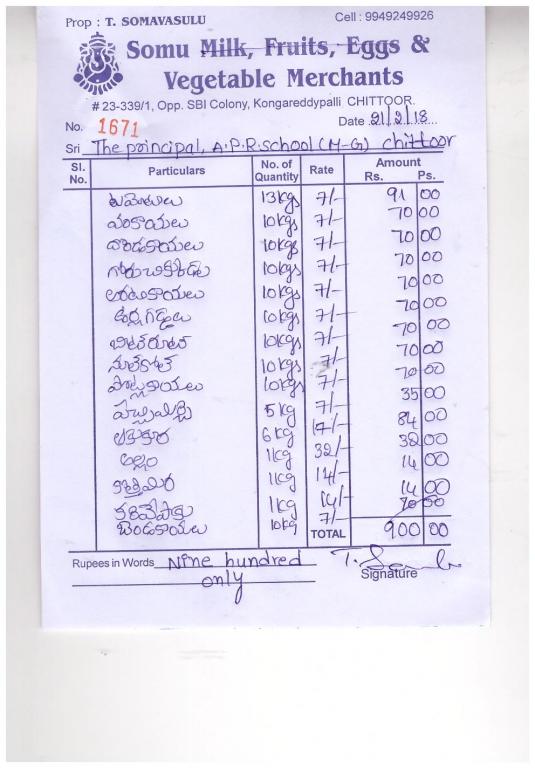 Prop : T. SOMAVASULU Cell : 9949249926
Somu Milk, Fruits, Eggs &
Vegetable Merchants
# 23-339/1, Opp. SBI Colony, Kongareddypalli CHITTOOR.
No. 1671 Date 21/2/18
Sri The principal, A.P.R.school (M-G) chittoor
Sl. No. Particulars No. of Quantity Rate Amount Rs. Ps.
టమోటాలు 13kgs 7/- 91 00
వంకాయలు 10kgs 7/- 70 00
దొండకాయలు 10kgs 7/- 70 00
గోరుచిక్కుడు 10kgs 7/- 70 00
అరటికాయలు 10kgs 7/- 70 00
ఉర్లగడ్డలు 10kgs 7/- 70 00
బీట్‌రూట్ 10kgs 7/- 70 00
నూల్‌కోల్ 10kgs 7/- 70 00
పొట్లకాయలు 10kgs 7/- 70 00
పచ్చిమిర్చి 5kg 7/- 35 00
ఆకుకూర 6kg 14/- 84 00
అల్లం 1kg 32/- 32 00
కొత్తిమిర 1kg 14/- 14 00
కరివేపాకు 1kg 14/- 14 00
బెండకాయలు 10kg 7/- 70 00
TOTAL 900 00
Rupees in Words Nine hundred
only
Signature